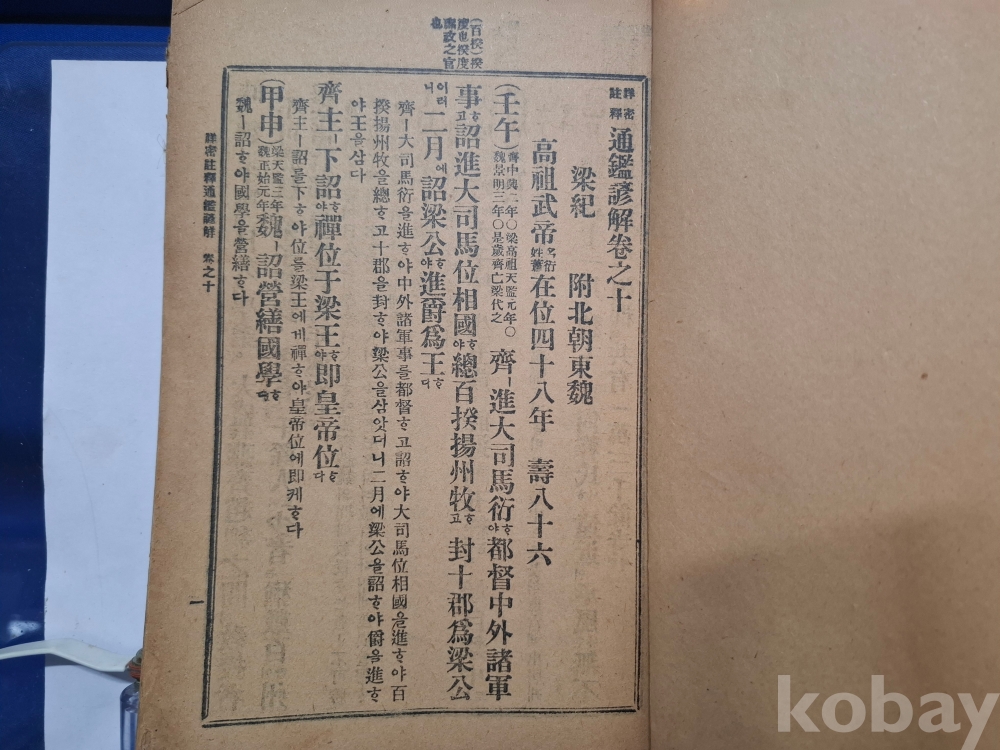 詳密註釋通鑑諺解卷之十
梁紀 附北朝東魏
高祖武帝名衍姓蕭在位四十八年 壽八十六
(壬午)齊中興二年○梁高祖天監元年○魏景明三年○是歲齊亡梁代之 齊ㅣ進大司馬衍ᄒᆞ야都督中外諸軍
事ᄒᆞ고詔進大司馬位相國ᄒᆞ야總百揆揚州牧ᄒᆞ고封十郡爲梁公
이러니二月에詔梁公ᄒᆞ야進爵爲王ᄒᆞ다
齊ㅣ大司馬衍을進ᄒᆞ야中外諸軍事를都督ᄒᆞ고詔ᄒᆞ야大司馬位相國을進ᄒᆞ야百
揆揚州牧을總ᄒᆞ고十郡을封ᄒᆞ야梁公을삼앗더니二月에梁公을詔ᄒᆞ야爵을進ᄒᆞ
야王을삼다
齊主ㅣ下詔ᄒᆞ야禪位于梁王ᄒᆞ야即皇帝位ᄒᆞ다
齊主ㅣ詔를下ᄒᆞ야位를梁王에게禪ᄒᆞ야皇帝位에即케ᄒᆞ다
(甲申)梁天監三年魏正始元年魏ㅣ詔營繕國學ᄒᆞ다
魏ㅣ詔ᄒᆞ야國學을營繕ᄒᆞ다
(百揆)揆
度也揆度
庶政之官
也
詳密註釋通鑑諺解 卷之十
一
kobay